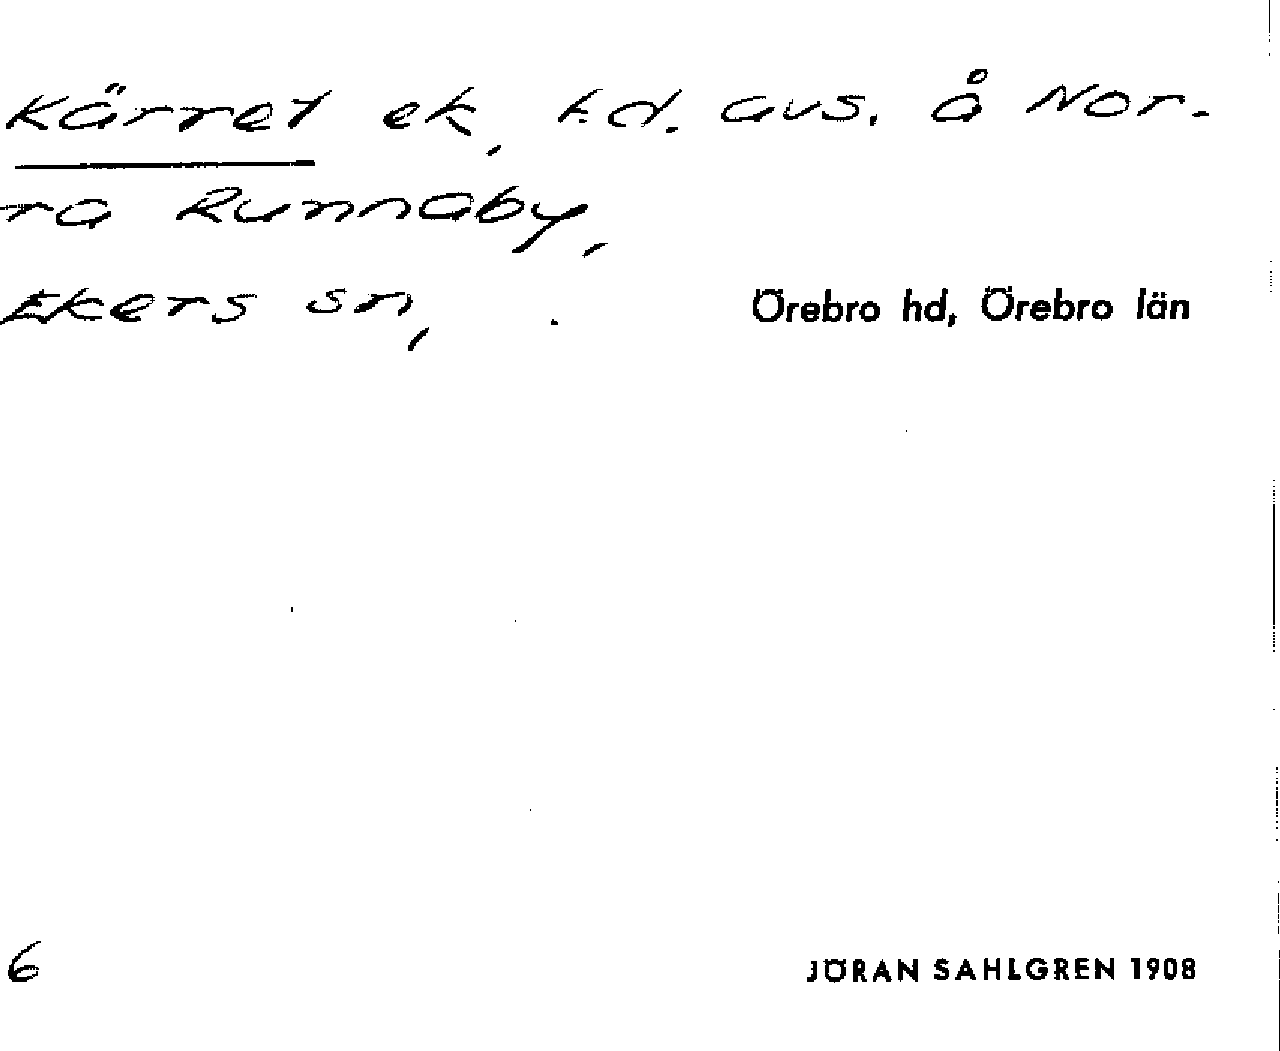 Kärret ek, f.d. avs. å Nor-
ra Runnaby,
Ekers sn, Örebro hd, Örebro län
6
JÖRAN SAHLGREN 1908